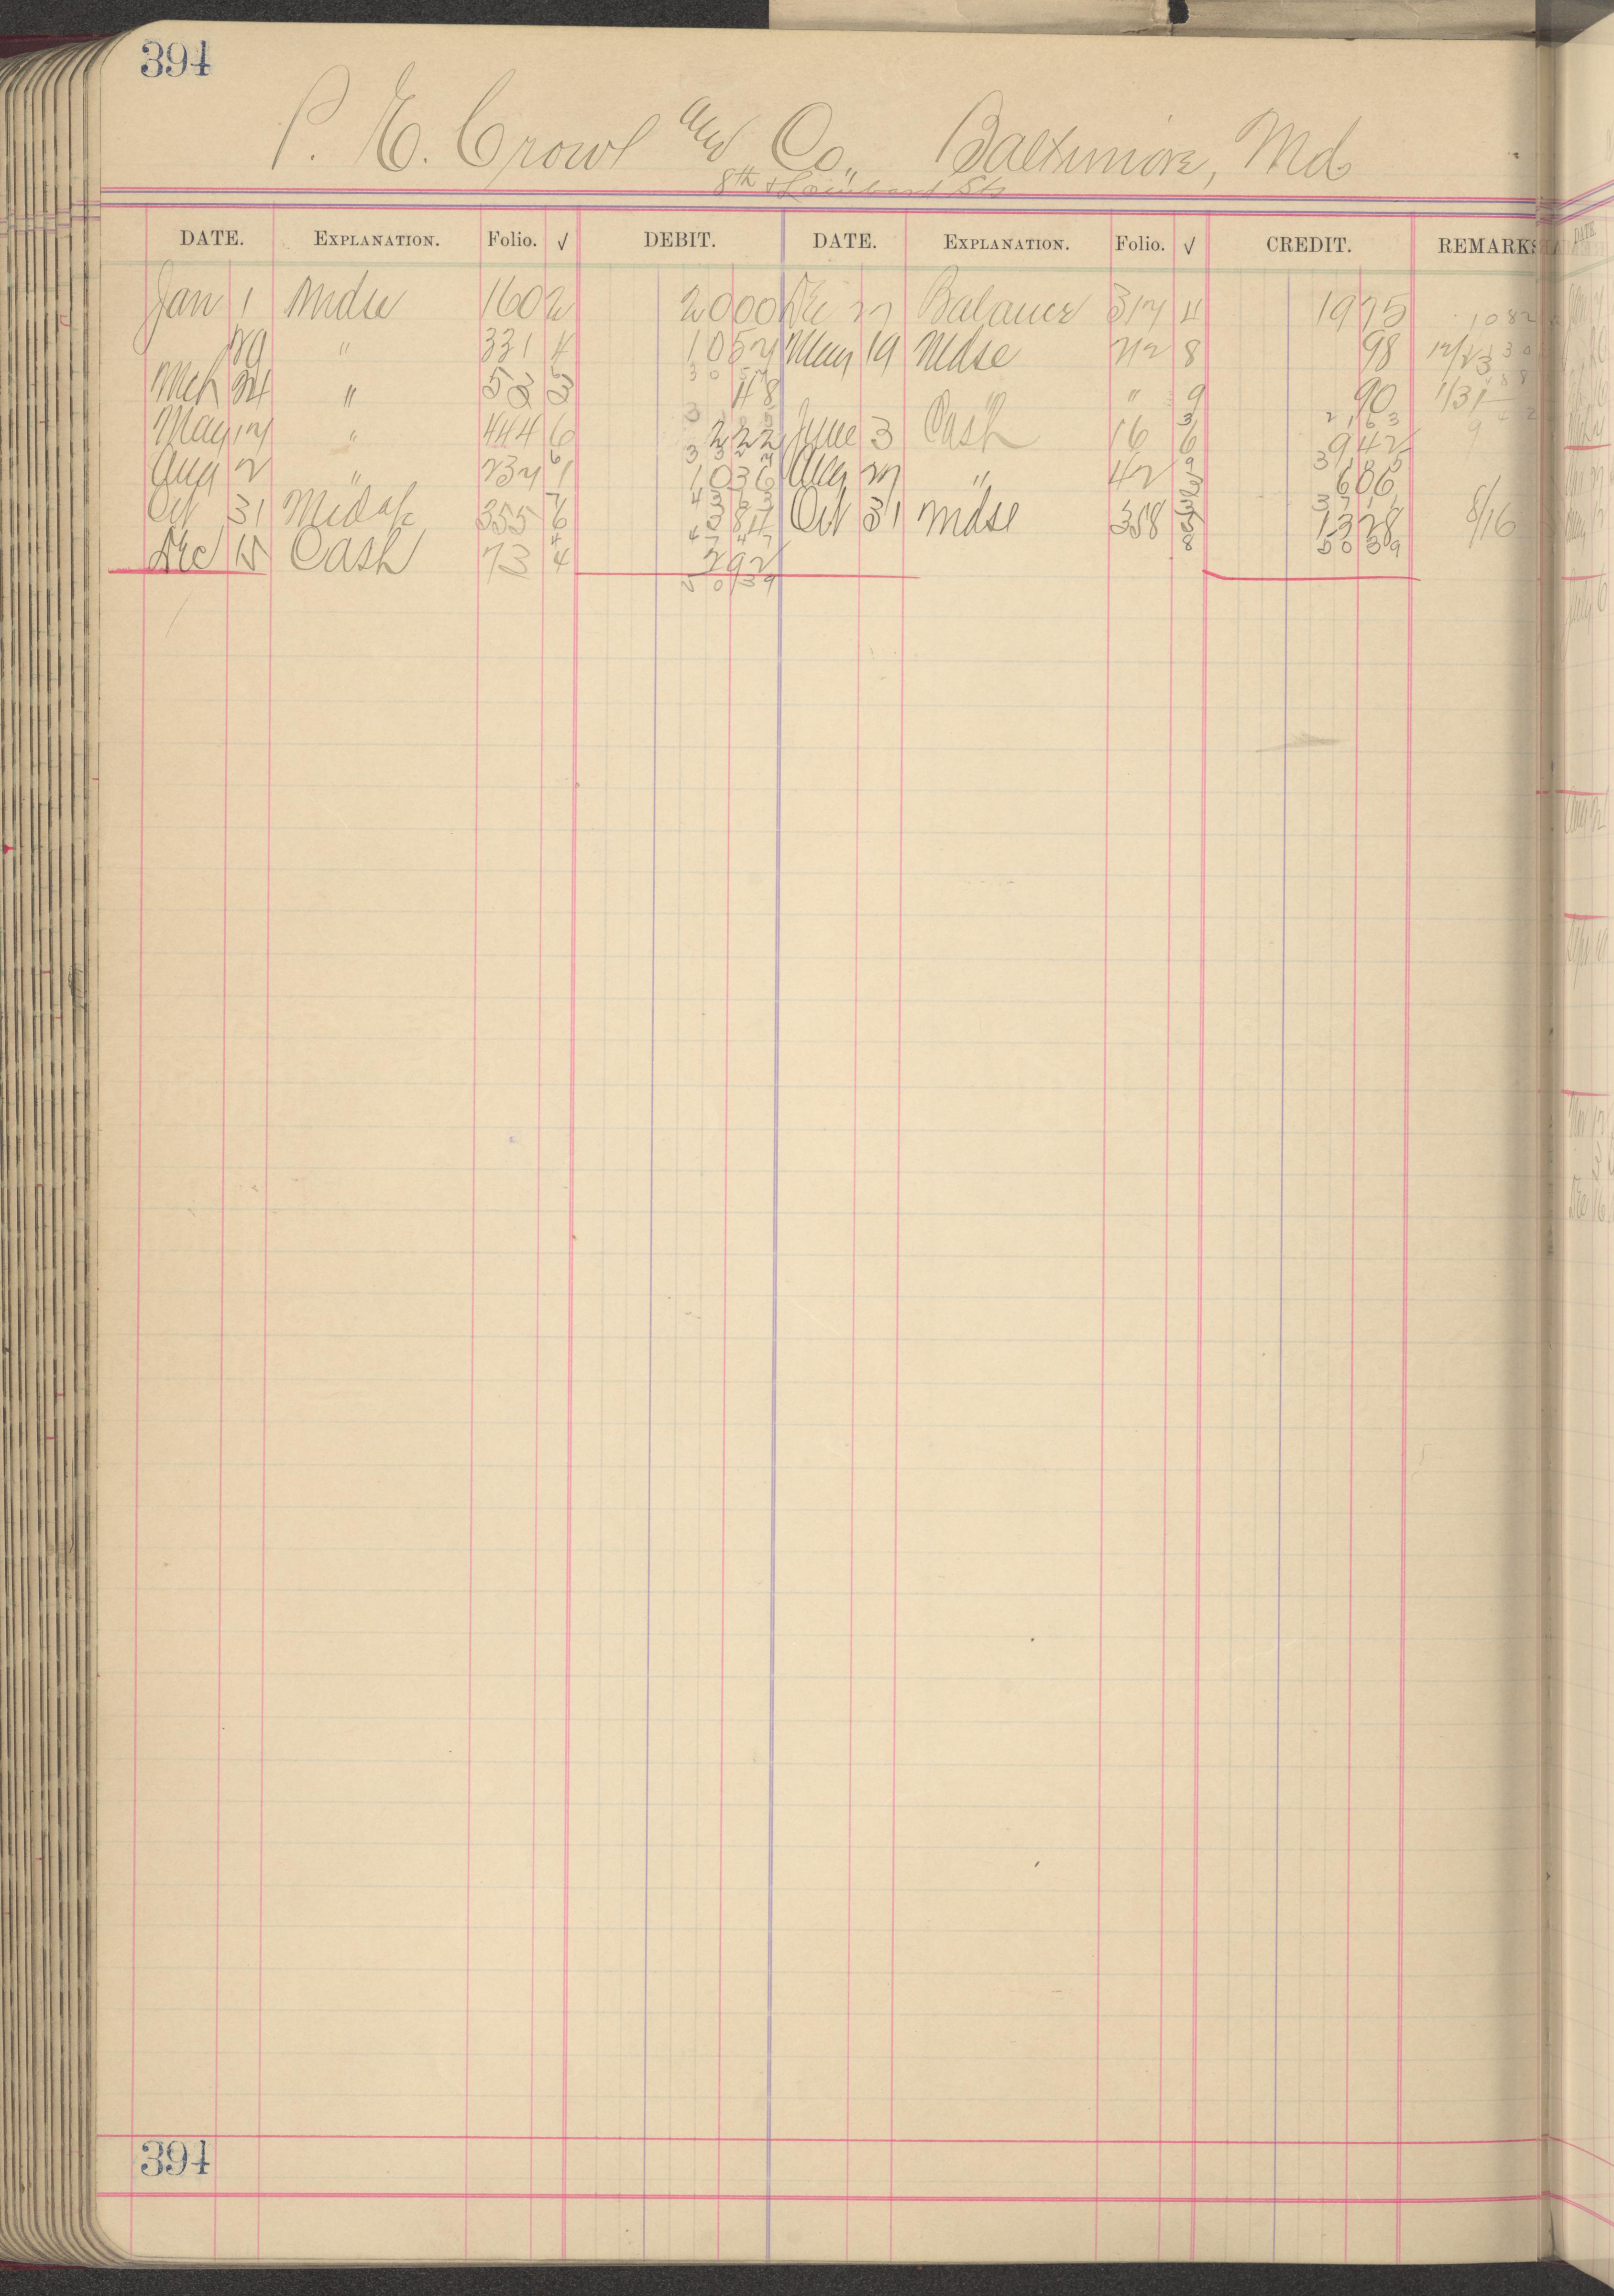 394
P. E. Crowl and Co., Baltimore, Md
8th & Lombard Sts
DATE. EXPLANATION. Folio. √ DEBIT. DATE. EXPLANATION. Folio. √ CREDIT. REMARKS
Jan 1 Mdse 160 2 2000 Dec 27 Balance 317 4 1975 1082
29 " 331 4 1057 May 19 Mdse 212 8 98
3057
Mch 24 " 52 3 48 " " " 9 90 1/31
May 17 " 444 6 222 June 3 Cash 16 6 942
Aug 2 " 237 1 1036 Aug 27 " 42 606
Oct 31 355 6 384 Oct 31 Mdse 358 1328 8/16
4747 5039
Dec 15 Cash 73 4 292
5039
394